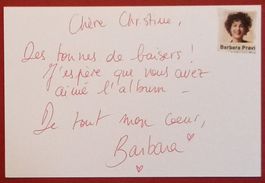 Chère Christine,
Barbara Pravi
Des tonnes de baisers !
J'espère que vous avez
aimé l'album –
De tout mon coeur,
Barbara